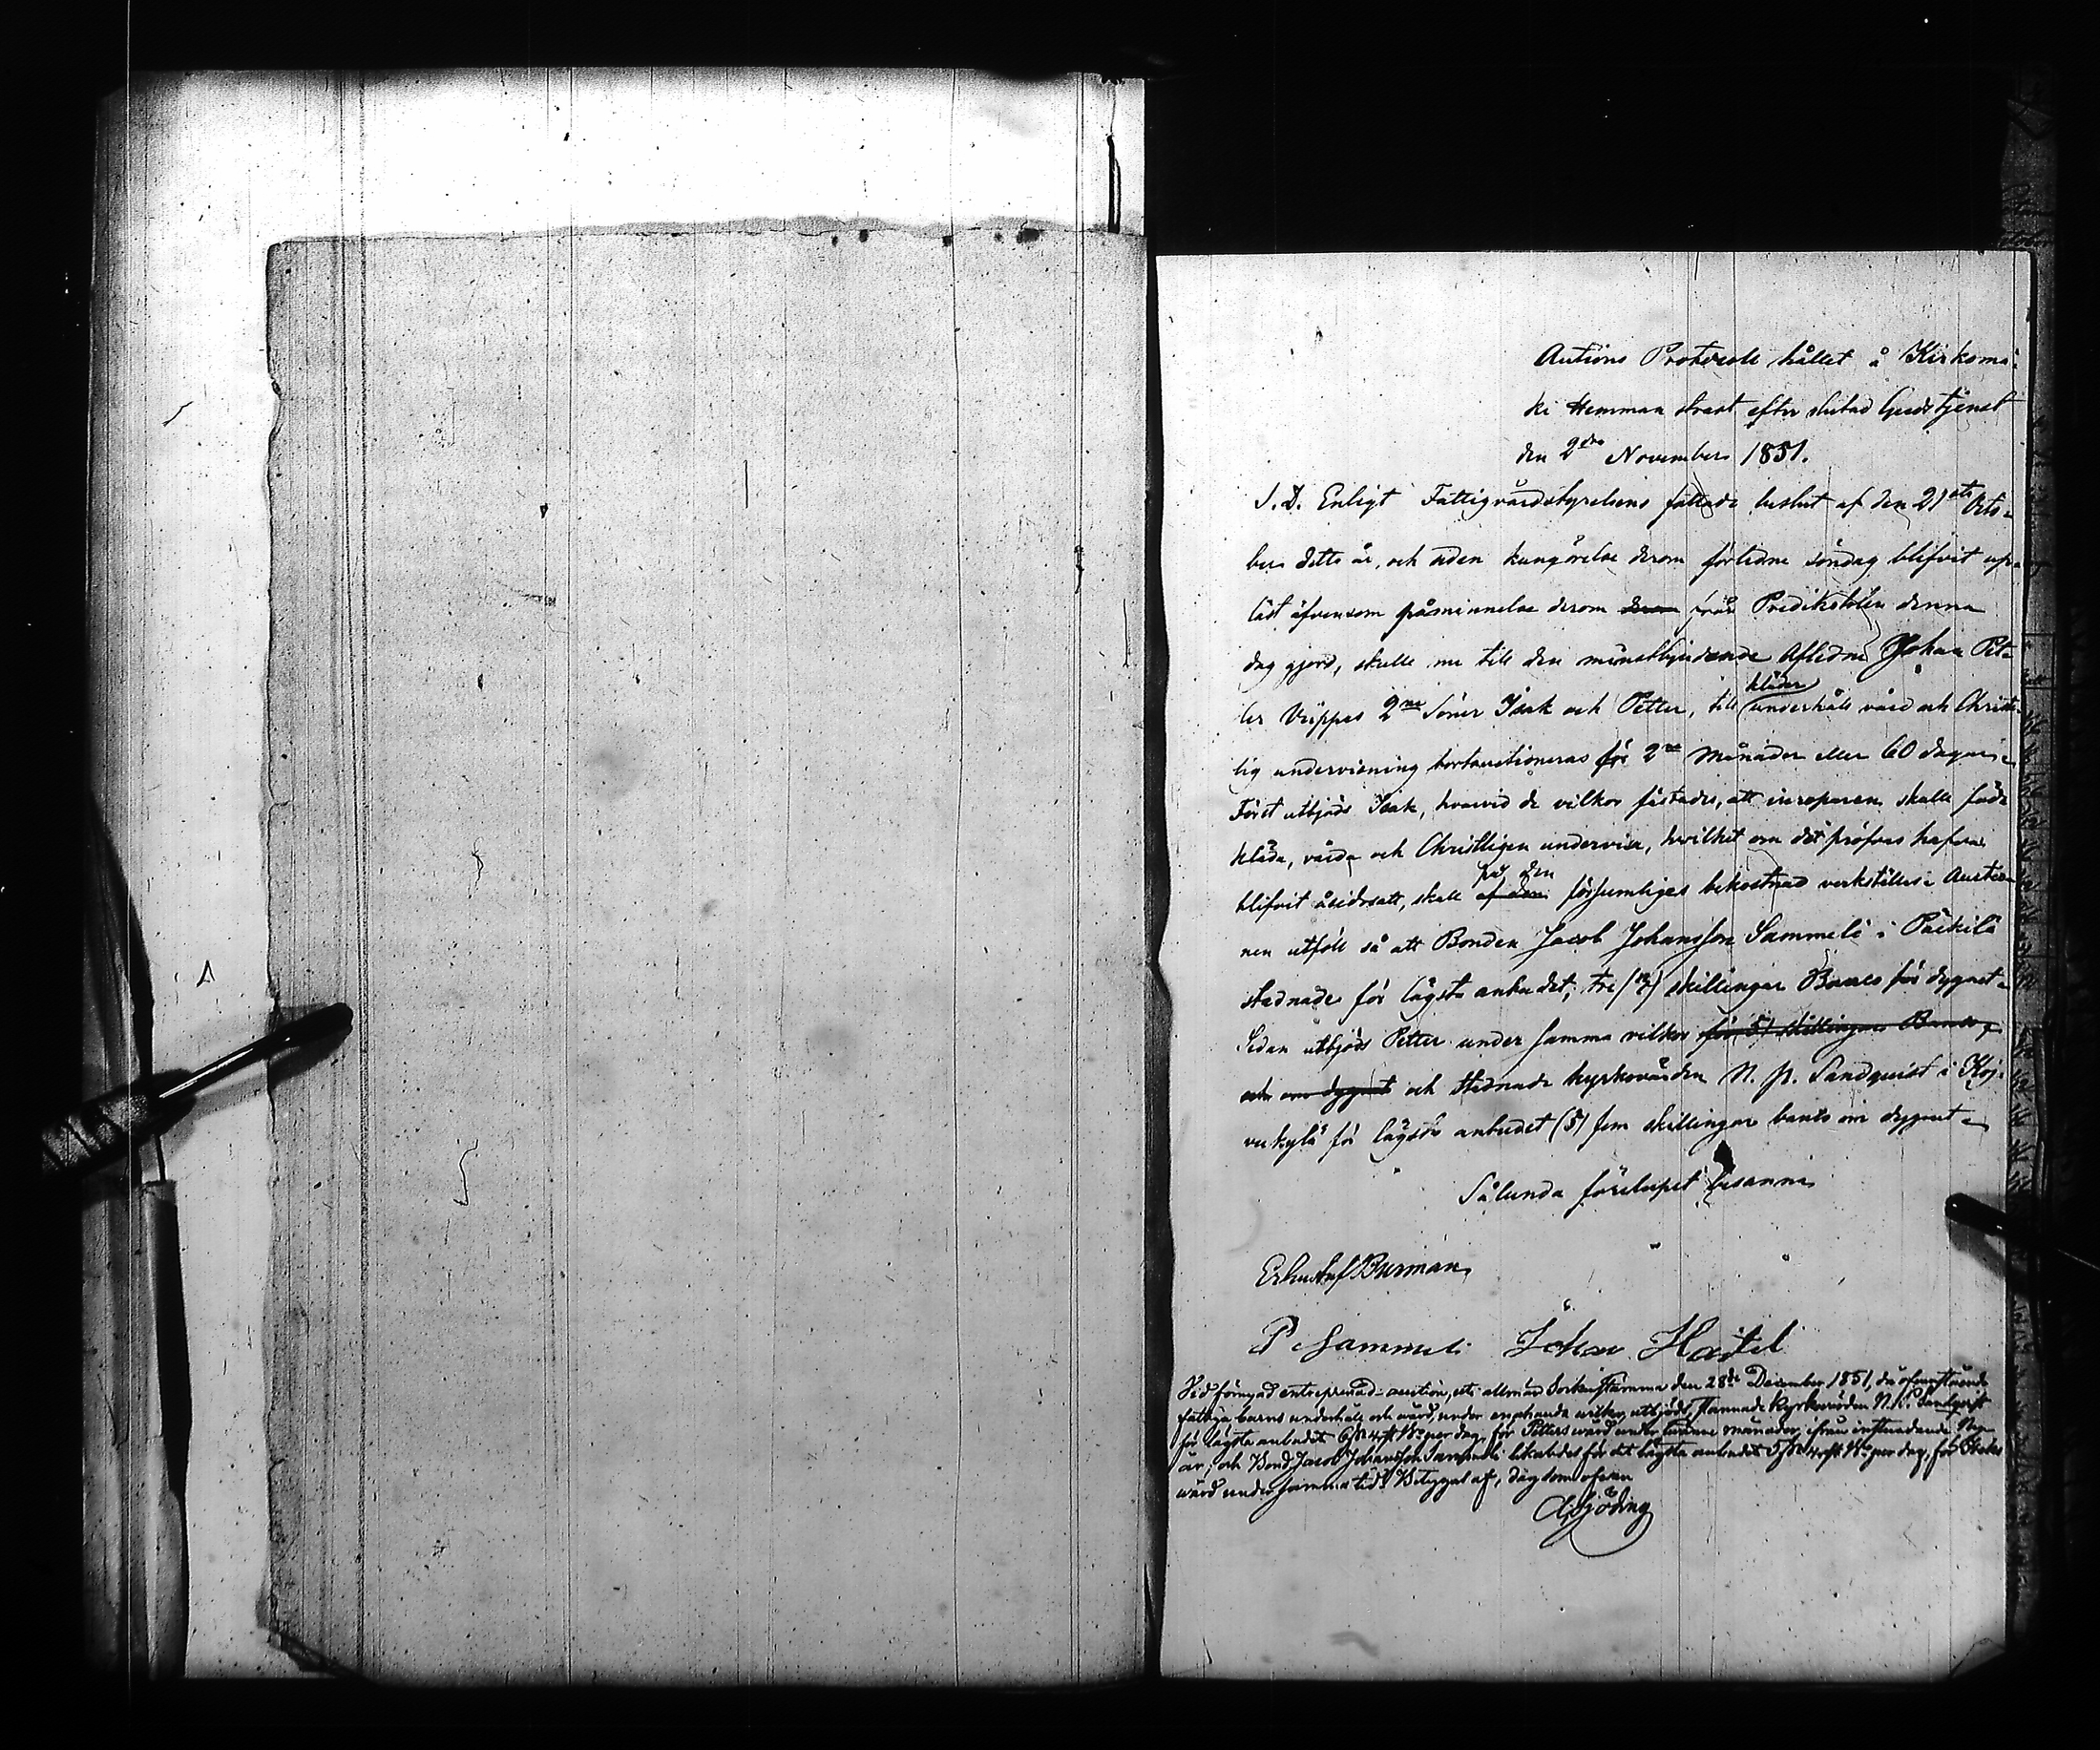 Autions Protocoll hållet å Kirkomä-
ki Hemman straxt efter slutad Gudstjenst
den 2dra November 1851.
S. D. Enligt Fattigvårdstyrelsens fattade beslut af den 21sta Octo-
ber detta år, och sedan kungörelse derom förledne söndag blifvit upp-
läst äfvensom påminnelse derom från Predikstolen denna
dag gjord, skulle nu till den minstbjudande Afledne Johan Pet-
ter 2ne Söner Isak och Petter, till kläder underhåll vård och Christ-
lig undervisning bortauctioneras för 2ne Månader eller 60 dagar.
Först utbjöds Isak, hvarvid de vilkor fästades, att inroparen skulle föda
kläda, vårda och Christligen undervisa, hvilket om det pröfvas hafva
blifvit åsidosatt, skall på den försumliges bekostnad verkställas. Auctio-
nen utföll så att Bonden Jacob Johansson Sammeli i Päckilä
stadnade för lägsta anbudet, tre skillingar Banco för dygnet.
Sedan utbjöds Petter under samma vilkor för 5 skillingar Banco
och om dygnet och stadnade kyrkovärden N. P. Sandqvist i Kój-
vukylä för lägsta anbudet (5) fem skillingar banco om dygnet.
Sålunda förelupit besanna
Er Gustaf Burman
P Sammeli Johan Hästel
Vid förnyad entreprenad-auction, vid allmän Sockenstämma den 28de December 1851, då ofvanstående
fattiga barns underhåll och vård, under enahanda vilkor, utbjöds, stannade Kyrkovärden N. P. Sandqvist
för lägsta anbudet 6 sk 4 rst Bco per dag, för Petters vård under tvänne månader, ifrån instundande Ny-
år; och Bond. Jacob Johansson Sammeli likaledes för det lägsta anbudet 5 sk 4 rst Bco per dag, för Isaks
vård under samma tid. Betygat af, dag som ofvan
Sjöding